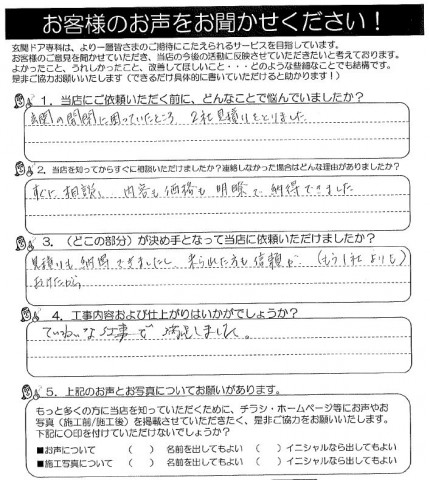 お客様のお声をお聞かせください！
玄関ドア専科は、より一層皆さまのご期待にこたえられるサービスを目指しています。
お客様のご意見を聞かせていただき、当店の今後の活動に反映させていただきたいと考えております。
よかったこと、うれしかったこと、改善してほしいこと・・・どのような些細なことでも結構です。
是非ご協力お願いいたします（できるだけ具体的に書いていただけると助かります！）
1．当店にご依頼いただく前に、どんなことで悩んでいましたか？
玄関の開閉に困っていたところ、2社見積りをとりました
2．当店を知ってからすぐに相談いただけましたか？連絡しなかった場合はどんな理由がありましたか？
すぐに相談。内容も価格も明瞭で納得できました
3．（どこの部分）が決め手となって当店に依頼いただけましたか？
見積りも納得できましたし、来られた方も信頼が（もう1社よりも）
おけたから
4．工事内容および仕上がりはいかがでしょうか？
ていねいな工事で満足しました。
5．上記のお声とお写真についてお願いがあります。
もっと多くの方に当店を知っていただくために、チラシ・ホームページ等にお声やお
写真（施工前/施工後）を掲載させていただきたく、是非ご協力をお願いいたします。
下記に〇印を付けていただけないでしょうか？
■お声について （ ）名前を出してもよい （ ）イニシャルなら出してもよい
■施工写真について （ ）名前を出してもよい （ ）イニシャルなら出してもよい